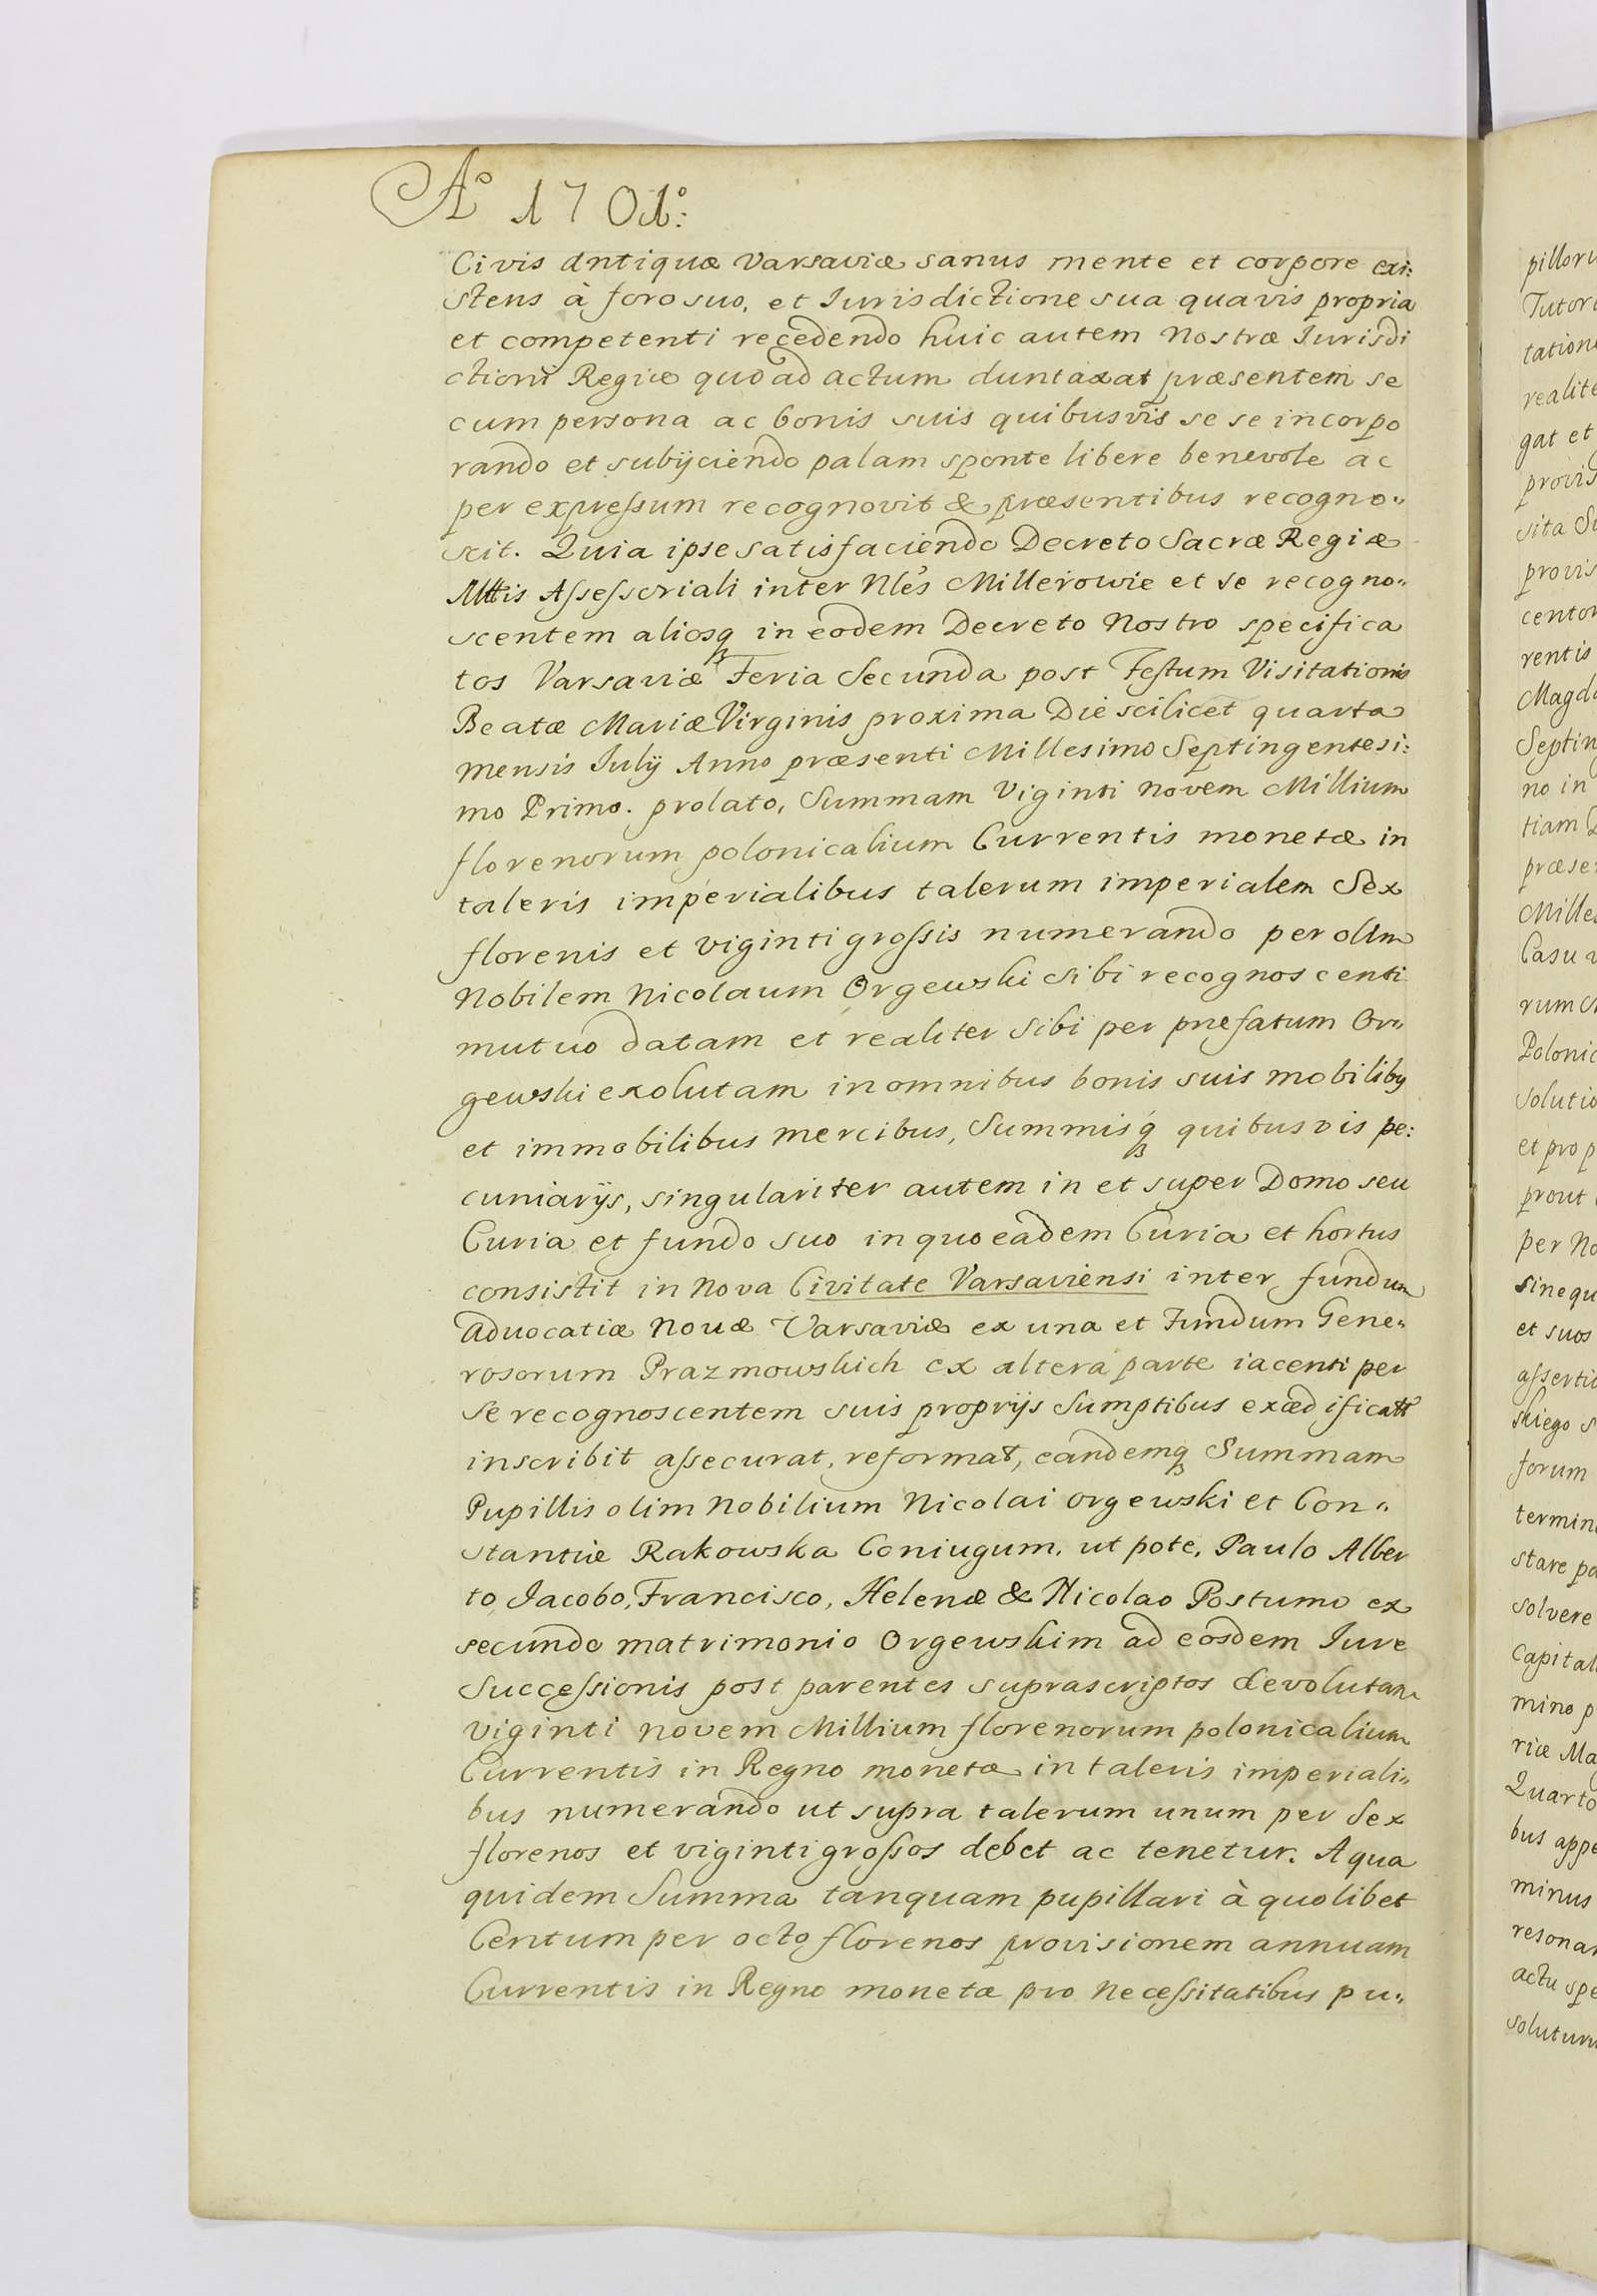 Aº 1701º:
Civis Antiquæ Varsaviæ sanus mente et corpore exi:
stens à foro suo, et Iurisdictione sua quavis propria
et competenti recedendo huic autem Nostræ Iurisdi
ctioni Regiæ quo ad actum duntaxat præsentem se
cum persona ac bonis suis quibusvis se se incorpo
rando et subijciendo palam sponte libere benevole ac
per expressum recognovit & præsentibus recogno„
scit. Quia ipse satisfaciendo Decreto Sacræ Regiæ
Mttis Assessoriali inter Nles Millerowie et se recogno„
scentem aliosq in eodem Decreto Nostro specifica
tos Varsaviæ Feria Secunda post Festum Visitationis
Beatæ Mariæ Virginis proxima Die scilicet quarta
mensis Iulij Anno præsenti Millesimo Septingentesi:
mo Primo. prolato, Summam Viginti novem Millium
florenorum polonicalium Currentis monetæ in
taleris imperialibus talerum imperialem Sex
florenis et viginti grossis numerando per olim
Nobilem Nicolaum Orgewski sibi recognoscenti
mutuo datam et realiter sibi per præfatum Or„
gewski exolutam in omnibus bonis suis mobiliby
et immobilibus mercibus, Summisq quibusvis pe:
cuniarijs, singulariter autem in et super Domo seu
Curia et fundo suo in quo eadem Curia et hortus
consistit in Nova Civitate Varsaviensi inter fundum
Advocatiæ Nouæ Varsaviæ ex una et Fundum Gene„
rosorum Prazmowskich ex altera parte iacenti per
se recognoscentem suis proprijs Sumptibus exædificatt
inscribit assecurat, reformat, eandemq Summam
Pupillis olim Nobilium Nicolai Orgewski et Con„
stantiæ Rakowska Coniugum, ut pote, Paulo Alber
to, Jacobo, Francisco, Helenæ & Nicolao Postumo ex
secundo matrimonio Orgewskim ad eosdem Iure
Successionis post parentes suprascriptos devolutam
viginti novem Millium florenorum polonicalium
Currentis in Regno monetæ in taleris imperiali„
bus numerando ut supra talerum unum per Sex
florenos et viginti grossos debet ac tenetur. A qua
quidem Summa tanquam pupillari à quolibet
Centum per octo florenos provisionem annuam
Currentis in Regno moneta pro necessitatibus pu„
pilloru
Tutor
tation
realite
gat et
provis
sita
provis
centor
rentis
Magd
Septin
no in
tiam
præser
Mille
Casu
rum
Polonic
solutio
et prop
prout
per No
sine qu
et suos
assertio
skiego s
forum
termin
stare pa
solvere
Capital
mino p
riæ Ma
Quarto
bus appe
minus
resonan
actu spe
soluturu